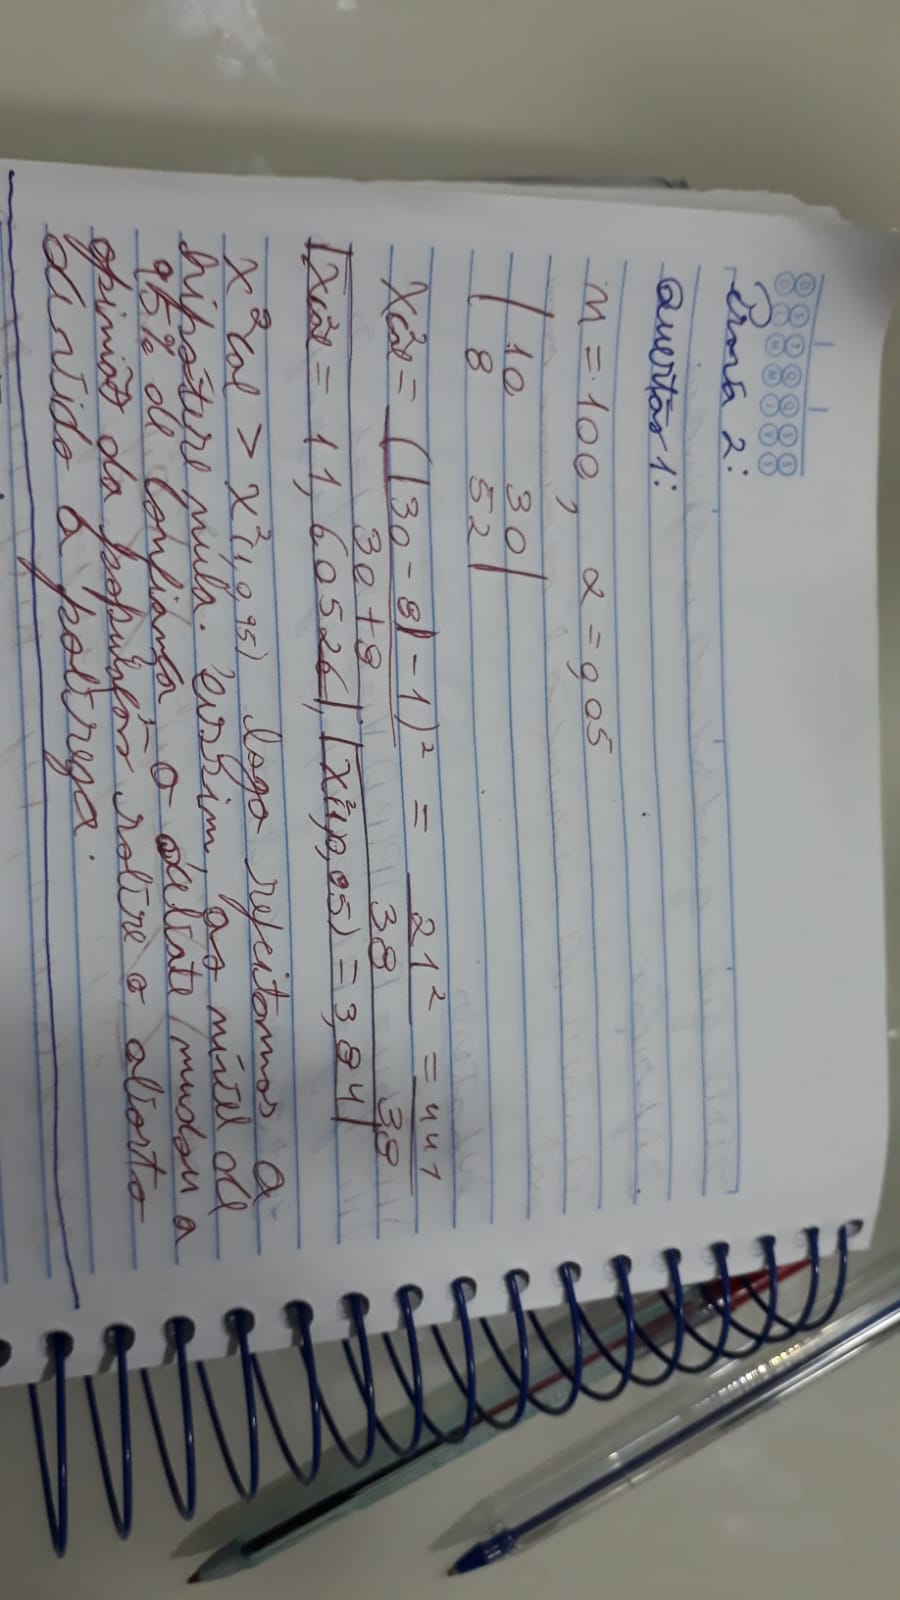 Prova 2:
Questão 1:
n = 100, α = 0,05
| 10 30 |
| 8 52 |
X²cal = (|30 - 8| - 1)² / 30 + 8 = 21² / 38 = 441 / 38
|X²cal = 11,60526|, |X²(1,0,95) = 3,84|
X²cal > X²(1,0,95) logo rejeitamos a
hipótese nula. Assim ao nível de
95% de confiança o debate mudou a
opinião da população sobre o aborto
devido a pobreza.